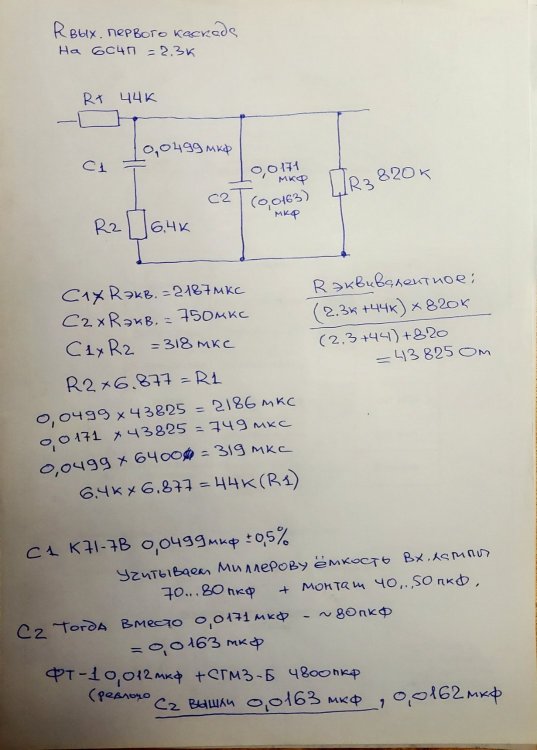 Rвых. первого каскада
На 6С4П = 2.3к
R1 44к
0,0499 мкф
C1
0,0171 мкф
(0,0163) мкф
C2
R3 820к
R2 6.4к
C1 x Rэкв. = 2187 мкс
C2 x Rэкв. = 750 мкс
C1 x R2 = 318 мкс
R2 x 6.877 = R1
R эквивалентное:
(2.3к + 44к) x 820к
(2.3 + 44) + 820
= 43825 Ом
0,0499 x 43825 = 2186 мкс
0,0171 x 43825 = 749 мкс
0,0499 x 6400 = 319 мкс
6.4к x 6.877 = 44к (R1)
C1 К71-7В 0,0499 мкф ± 0,5%
Учитываем Миллерову ёмкость вх. лампы
70...80 пкф + монтаж 40...50 пкф.
C2 Тогда вместо 0,0171 мкф - ~80 пкф
= 0,0163 мкф
ФТ-1 0,012 мкф + СГМЗ-Б 4800 пкф
(реально
C2 вышли 0,0163 мкф , 0,0162 мкф